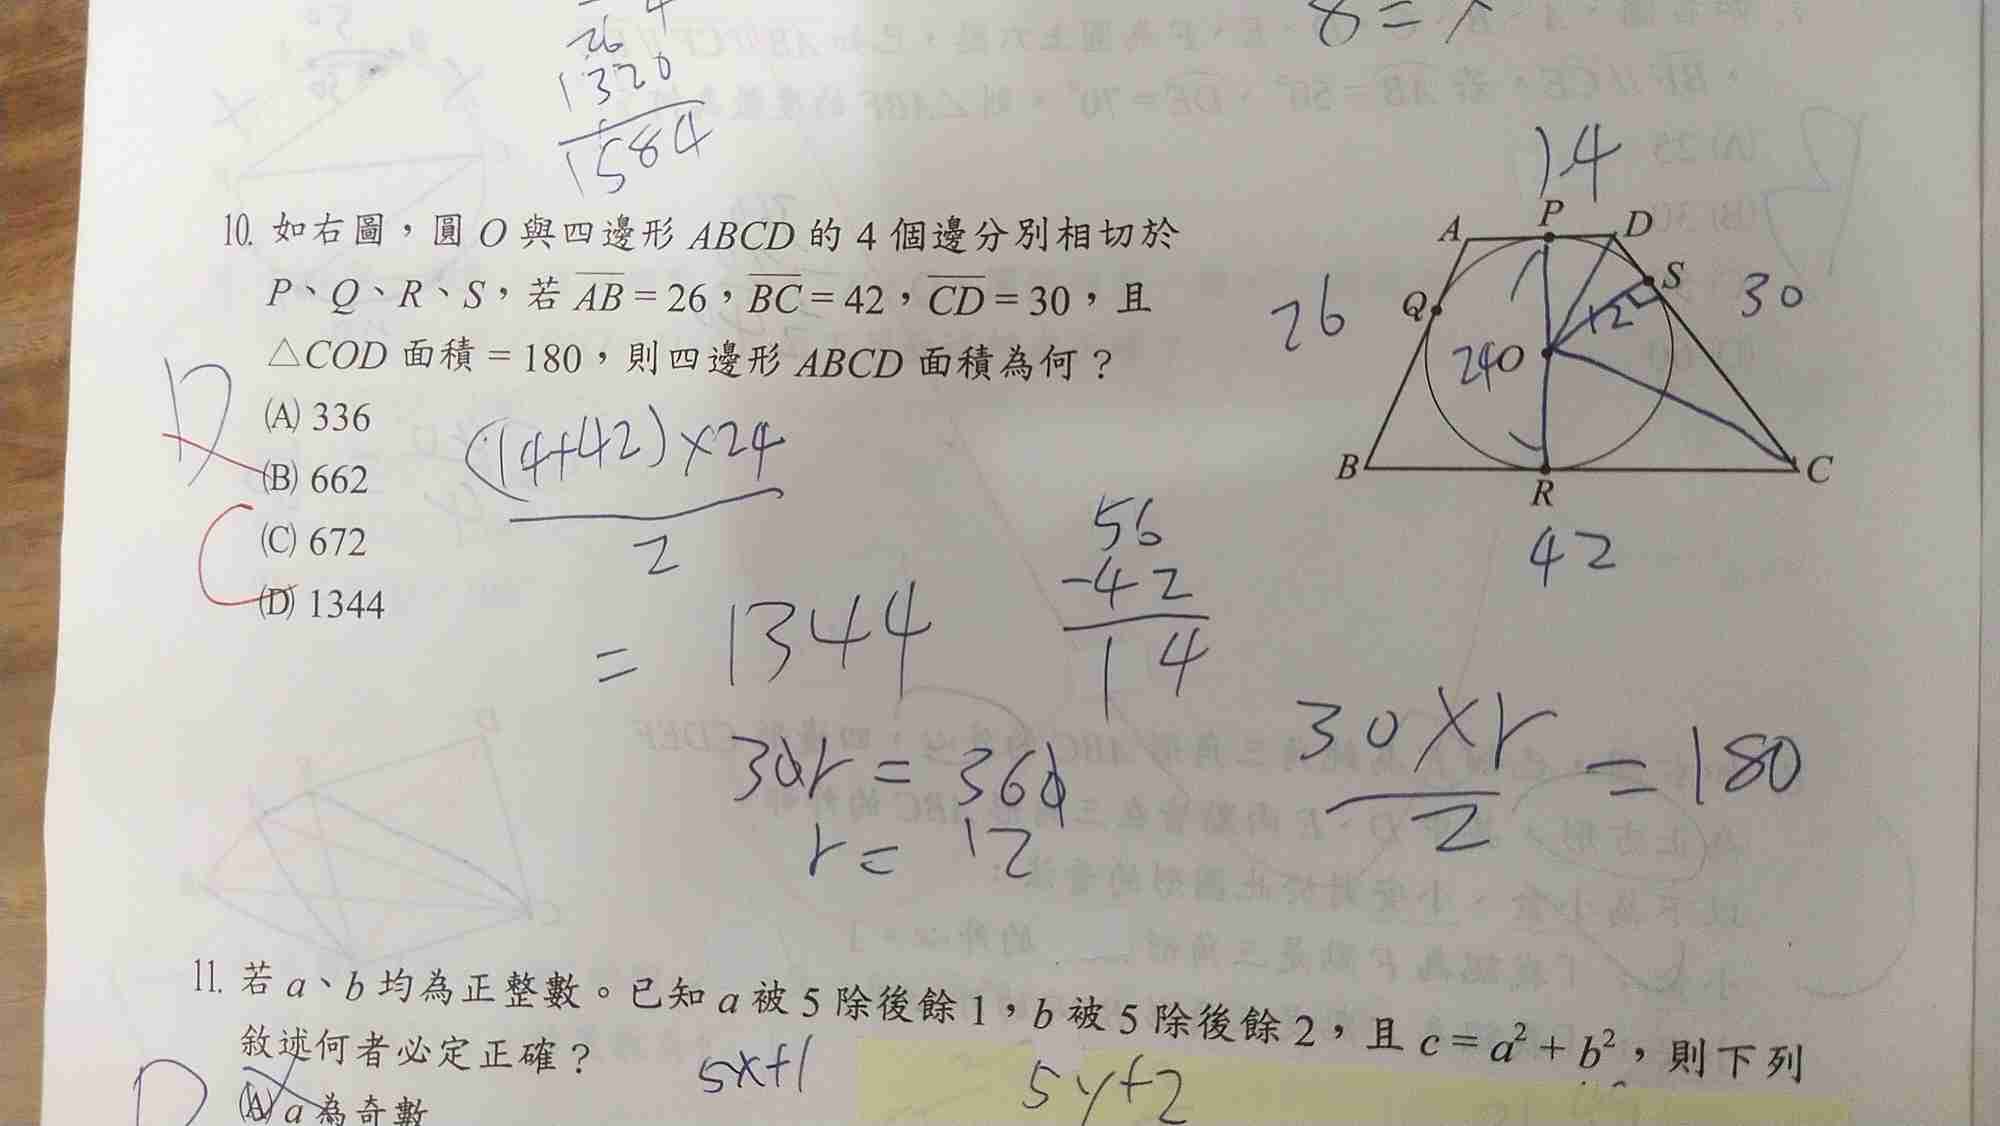 8 = x
26
1320
1584
10. 如右圖，圓 O 與四邊形 ABCD 的 4 個邊分別相切於
P、Q、R、S，若 AB = 26，BC = 42，CD = 30，且
△COD 面積 = 180，則四邊形 ABCD 面積為何？
D
(A) 336
(B) 662
C
(C) 672
(D) 1344
(14+42)×24
2
= 1344
56
-42
14
30r = 360
r = 12
30×r
2
= 180
14
A P D
26 Q S 30
12
24 O
B R C
42
11. 若 a、b 均為正整數。已知 a 被 5 除後餘 1，b 被 5 除後餘 2，且 c = a² + b²，則下列
敘述何者必定正確？
5x+1
5y+2
D
(A) a 為奇數